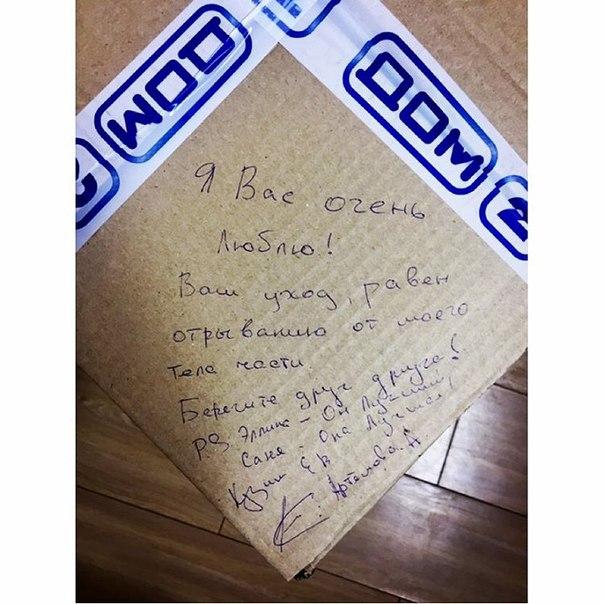 ДОМ
ДОМ 2
2
Я Вас очень
Люблю!
Ваш уход, равен
отрыванию от моего
тела части
Берегите друг друга!
PS Эллина - Он Лучший,
Саня - Она Лучшая,
Кузин ЕВ
Артемова. А.